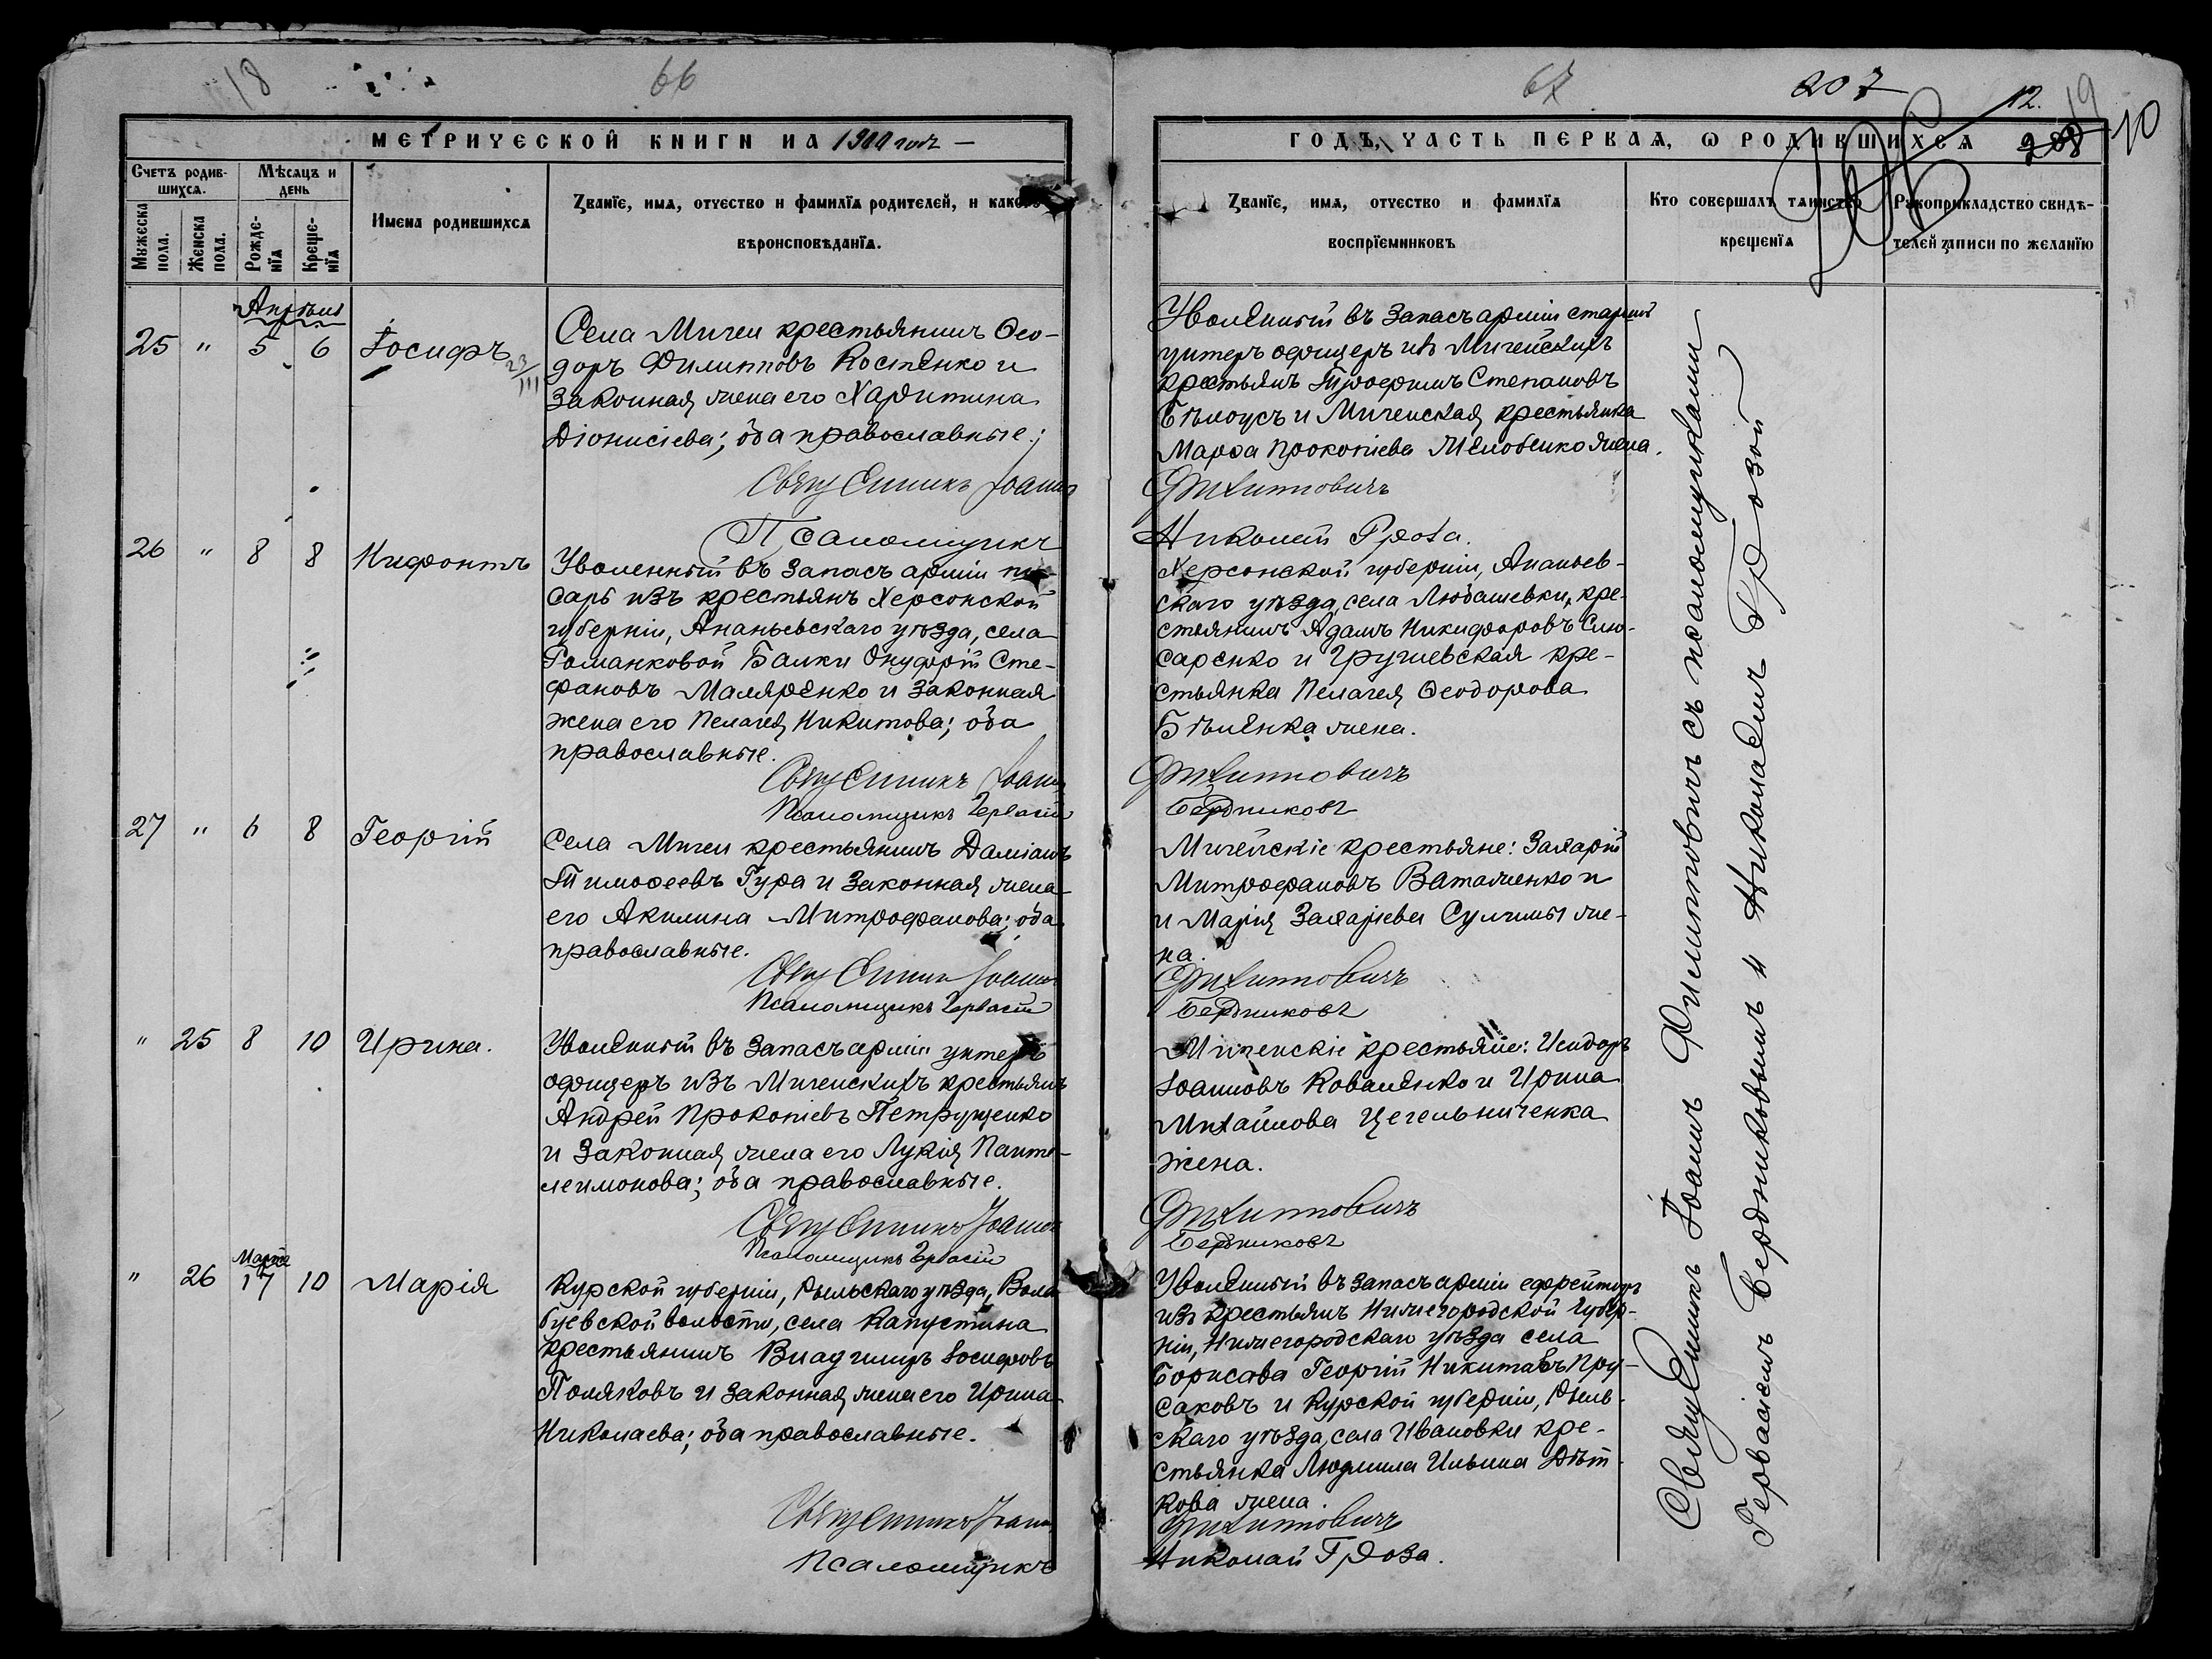 18
66
МЕТРИЧЕСКОЙ КНИГИ НА 1900 годъ
Счетъ родившихся.
Мѣсяцъ и день
Мужеска пола.
Женска пола.
Рожденія
Крещенія
Имена родившихся
Званіе, имя, отчество и фамилія родителей, и какого
вѣроисповѣданія.
Апрѣль
25 " 5 6 Іосифъ
23/III
Села Мигеи крестьянинъ Ѳео-
доръ Филипповъ Костенко и
законная жена его Харитина
Діонисіева; оба православные.
Священникъ Іоаннъ
Псаломщикъ
26 " 8 8 Нифонтъ
Уволенный въ запасъ арміи пи-
сарь изъ крестьянъ Херсонской
губерніи, Ананьевскаго уѣзда, села
Романковой Балки Онуфрій Сте-
фановъ Маляренко и законная
жена его Пелагея Никитова; оба
православные.
Священникъ Іоаннъ
Псаломщикъ Гервасій
27 " 6 8 Георгій
Села Мигеи крестьянинъ Даміанъ
Тимоѳеевъ Гура и законная жена
его Акилина Митрофанова; оба
православные.
Священникъ Іоаннъ
Псаломщикъ Гервасій
" 25 8 10 Ирина.
Уволенный въ запасъ арміи унтеръ
офицеръ изъ Мигейскихъ крестьянъ
Андрей Прокопіевъ Петрущенко
и законная жена его Лукія Панте-
леимонова; оба православные.
Священникъ Іоаннъ
Псаломщикъ Гервасій
Марта
" 26 17 10 Марія
Курской губерніи, Рыльскаго уѣзда,
волости, села Капустина
крестьянинъ Владимиръ Іосифовъ
Поляковъ и законная жена его Ирина
Николаева; оба православные.
Священникъ Іоаннъ
Псаломщикъ
67
207
12.
19
208
10
ГОДЪ, ЧАСТЬ ПЕРВАЯ, О РОДИВШИХСЯ
Званіе, имя, отчество и фамилія
воспріемниковъ
Кто совершалъ таинство
крещенія
Рукоприкладство свидѣ-
телей записи по желанію
Уволенный въ запасъ арміи старшій
унтеръ офицеръ изъ Мигейскихъ
крестьянъ Трофимъ Степановъ
Бѣлоусъ и Мигейская крестьянка
Марѳа Прокопіева жена.
Филипповичъ
Николай Гроза.
Херсонской губерніи, Ананьев-
скаго уѣзда, села Любашевки, кре-
стьянинъ Адамъ Никифоровъ Слю-
саренко и Грушевская кре-
стьянка Пелагея Ѳеодорова
Бѣленка жена.
Филипповичъ
Бердниковъ
Мигейскіе крестьяне: Захарій
Митрофановъ Ватаженко и
и Марія Захаріева Сулимы же-
на.
Филипповичъ
Бердниковъ
Мигейскіе крестьяне: Исидоръ
Іоанновъ Коваленко и Ирина
Михайлова Цегельниченка
жена.
Филипповичъ
Бердниковъ
Уволенный въ запасъ арміи ефрейторъ
изъ крестьянъ Нижегородской губер-
ніи, Нижегородскаго уѣзда села
Борисова Георгій Никитовъ Пру-
саковъ и Курской губерніи, Рыль-
скаго уѣзда, села Ивановки кре-
стьянка Людмила Ильина Дѣт-
кова жена.
Филипповичъ
Николай Гроза.
Священникъ Іоаннъ Филипповичъ съ псаломщиками
Гервасіемъ Бердниковымъ и Николаемъ Грозой